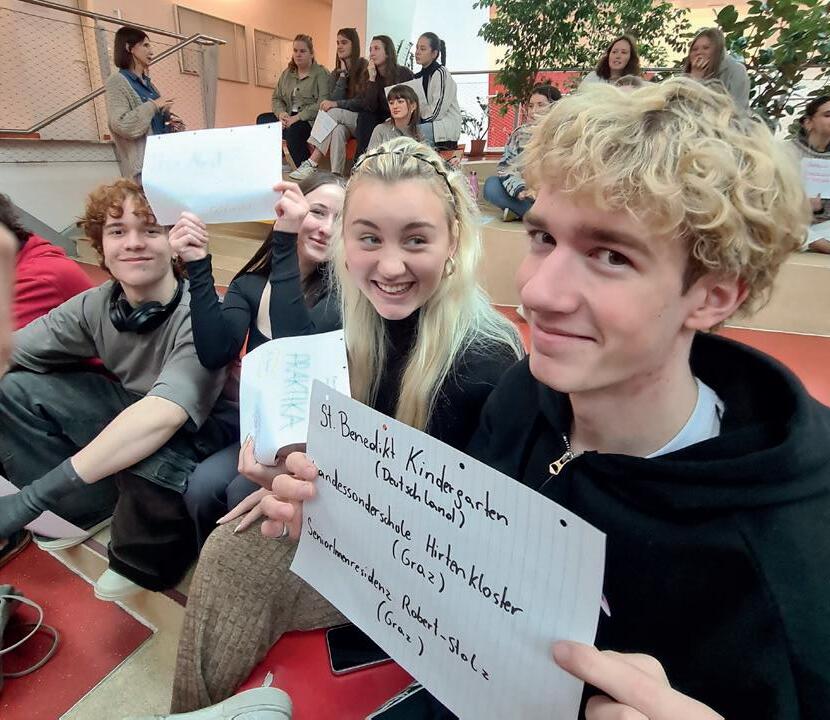 PRAKTIKA
St. Benedikt Kindergarten
(Deutschland)
Landessonderschule Hirtenkloster
(Graz)
SeniorInnenresidenz Robert-Stolz
(Graz)